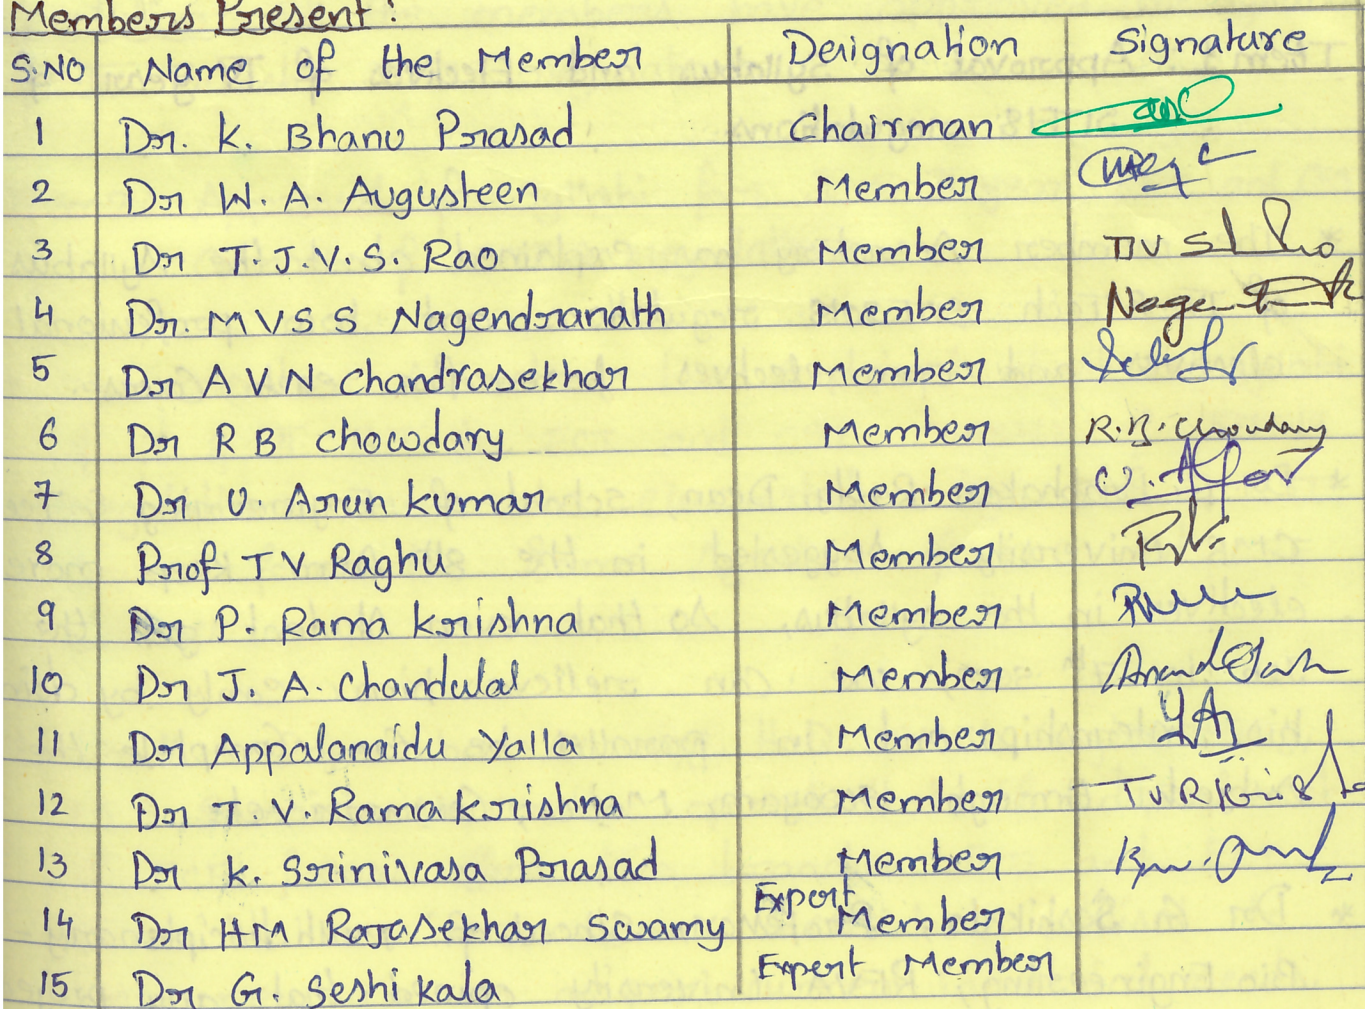 Members Present:
S.NO Name of the Member Designation Signature
1 Dr. K. Bhanu Prasad Chairman
2 Dr W. A. Augusteen Member
3 Dr T. J. V. S. Rao Member
4 Dr. M V S S Nagendranath Member
5 Dr A V N Chandrasekhar Member
6 Dr R B Chowdary Member R.B. Chowdary
7 Dr U. Arun Kumar Member
8 Prof T V Raghu Member
9 Dr P. Rama Krishna Member
10 Dr J. A. Chandulal Member
11 Dr Appalanaidu Yalla Member
12 Dr T. V. Rama Krishna Member
13 Dr K. Srinivasa Prasad Member
14 Dr HM Rajasekhar Swamy Expert Member
15 Dr G. Seshi kala Expert Member